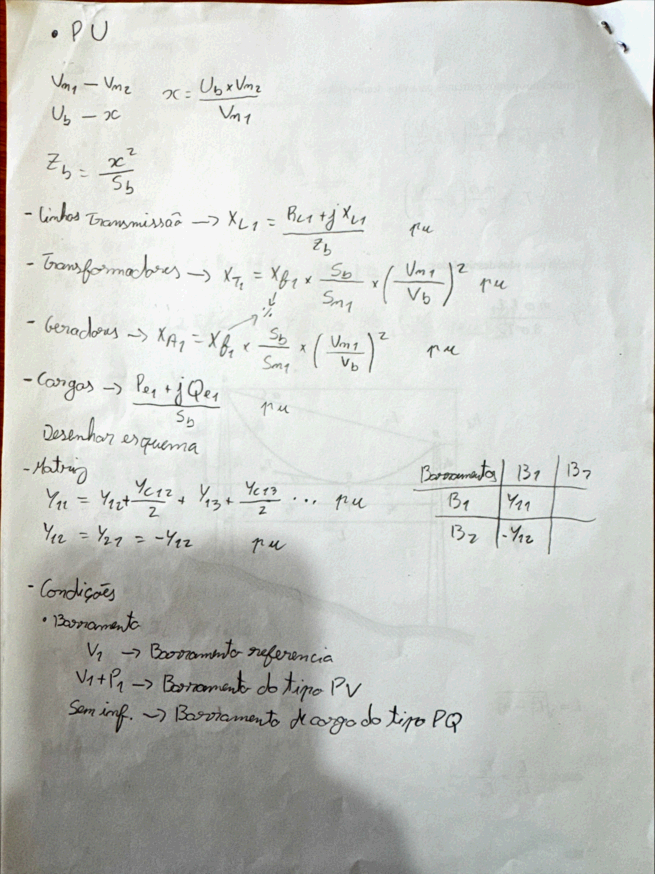 • PU
Vm1 — Vm2
x = Ub × Vm2 / Vm1
Ub — x
Zb = x² / Sb
- Linhas Transmissão → XL1 = RL1 + j XL1 / Zb pu
- Transformadores → XT1 = Xf1 × Sb / Sm1 × (Vm1 / Vb)² pu
%
- Geradores → XA1 = Xf1 × Sb / Sm1 × (Vm1 / Vb)² pu
- Cargas → Pe1 + j Qe1 / Sb pu
Desenhar esquema
- Matriz
Y11 = Y12 + Yc12 / 2 + Y13 + Yc13 / 2 ... pu
Y12 = Y21 = -Y12 pu
Barramentos | B1 | B2
B1 | Y11
B2 | -Y12
- Condições
• Barramento
V1 → Barramento referencia
V1+P1 → Barramento do tipo PV
Sem inf. → Barramento de carga do tipo PQ